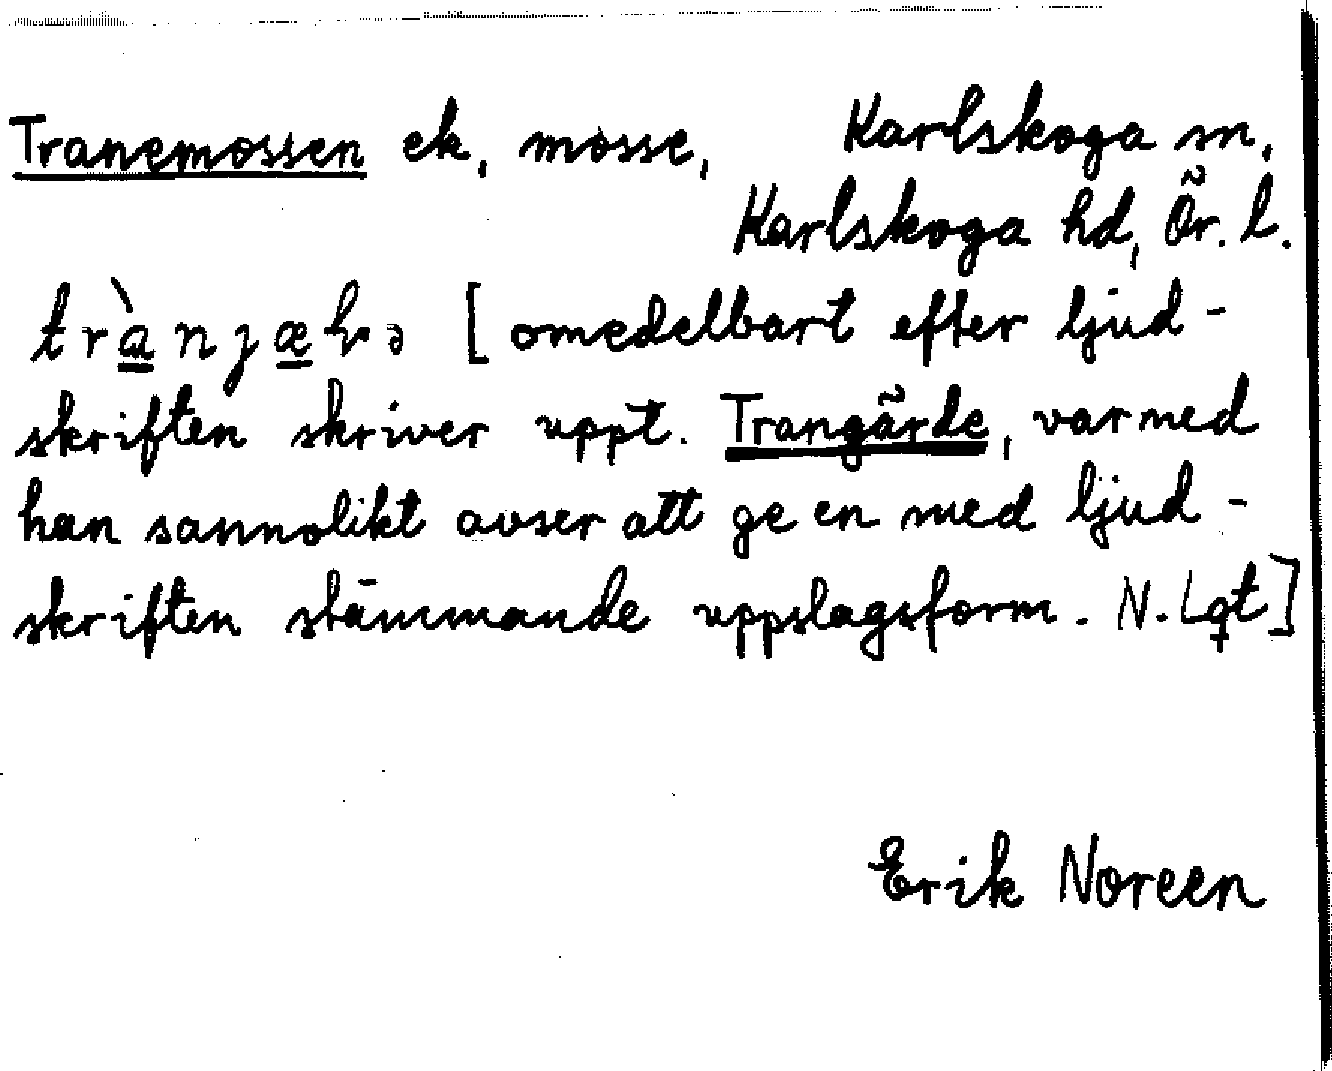 Tranemossen ek, mosse, Karlskoga sn,
Karlskoga hd, Ör. l.
omedelbart efter ljud-
skriften skriver uppt. Trangärde, varmed
han sannolikt avser att ge en med ljud-
skriften stämmande uppslagsform. N. Lqt]
Erik Noreen